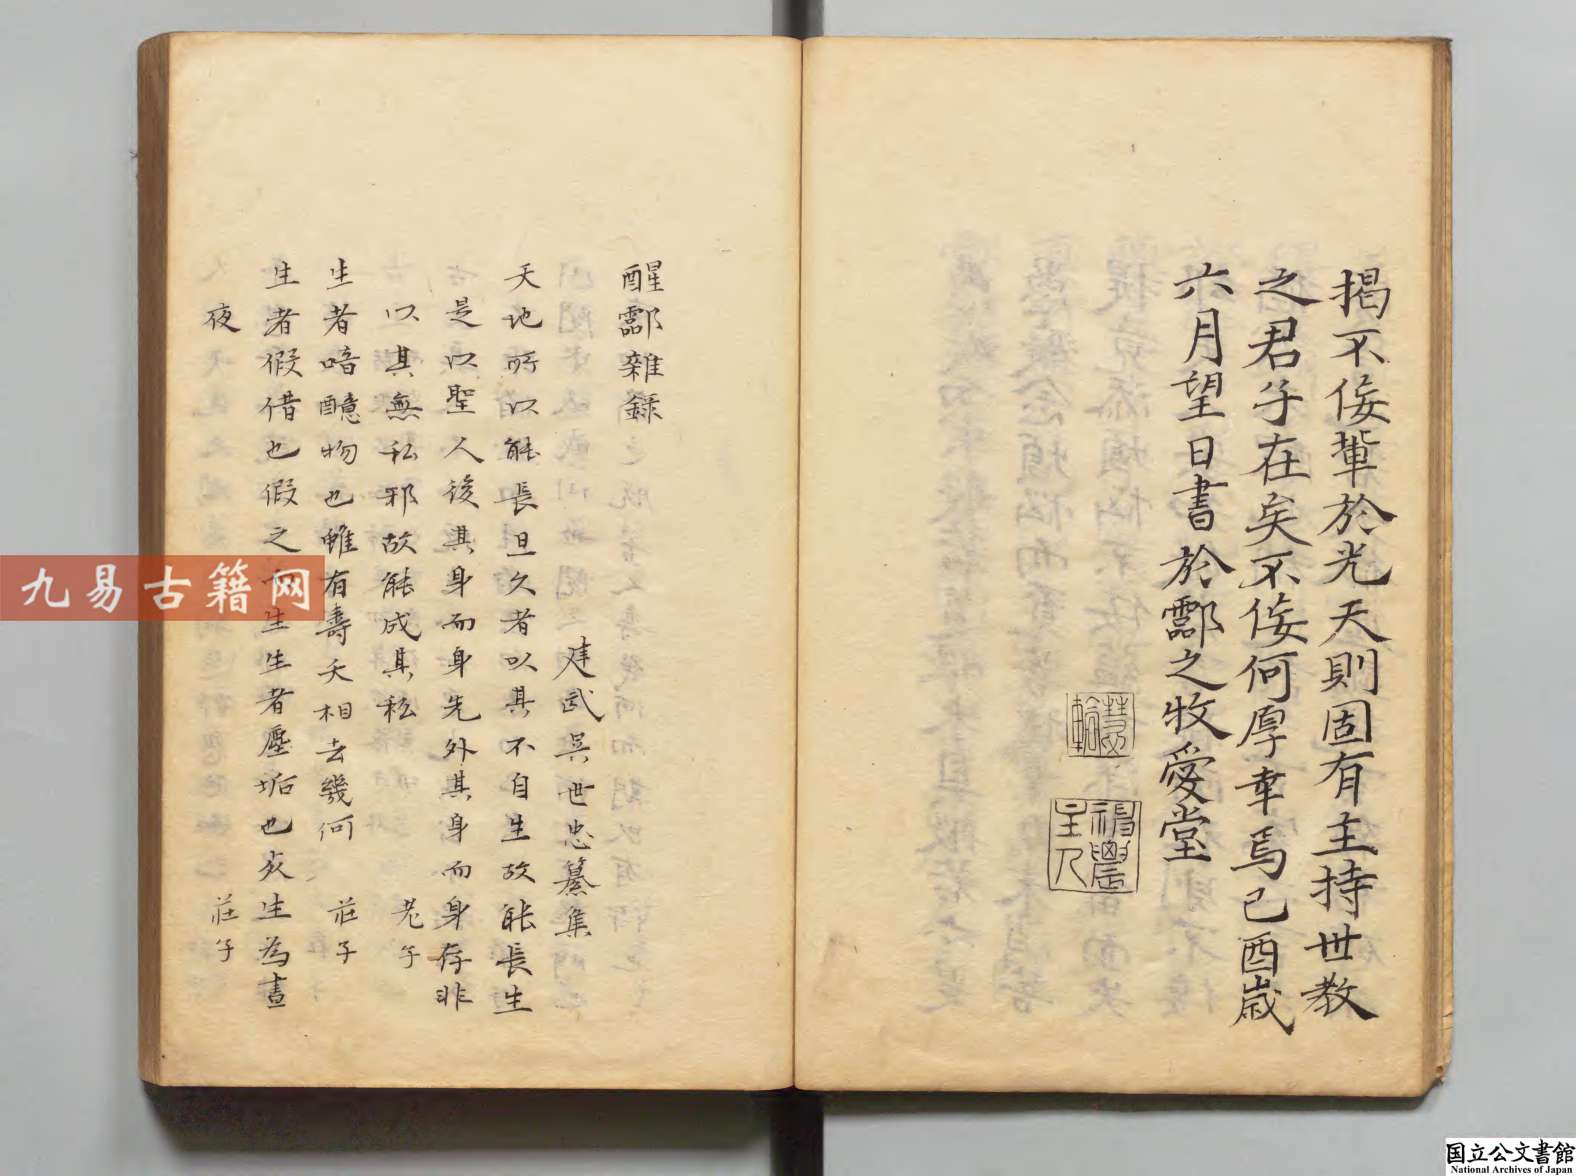 揭不佞輩於光天則固有主持世教
之君子在矣不佞何厚幸焉己酉歲
六月望日書於酃之牧愛堂
醒酃雜錄
建武吳世忠纂集
天地所以能長且久者以其不自生故能長生
是以聖人後其身而身先外其身而身存非
以其無私邪故能成其私 老子
生者喑醷物也雖有壽夭相去幾何 莊子
生者假借也假之而生生者塵垢也死生為晝
夜 莊子
九易古籍网
国立公文書館
National Archives of Japan